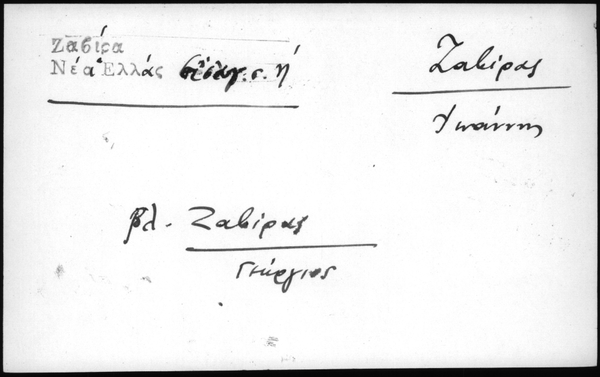 Ζαβίρα
Νέα Ἑλλάς εἰσαγ. σ. ή
Ζαβίρας
Ἰωάννης
βλ. Ζαβίρας
Γεώργιος